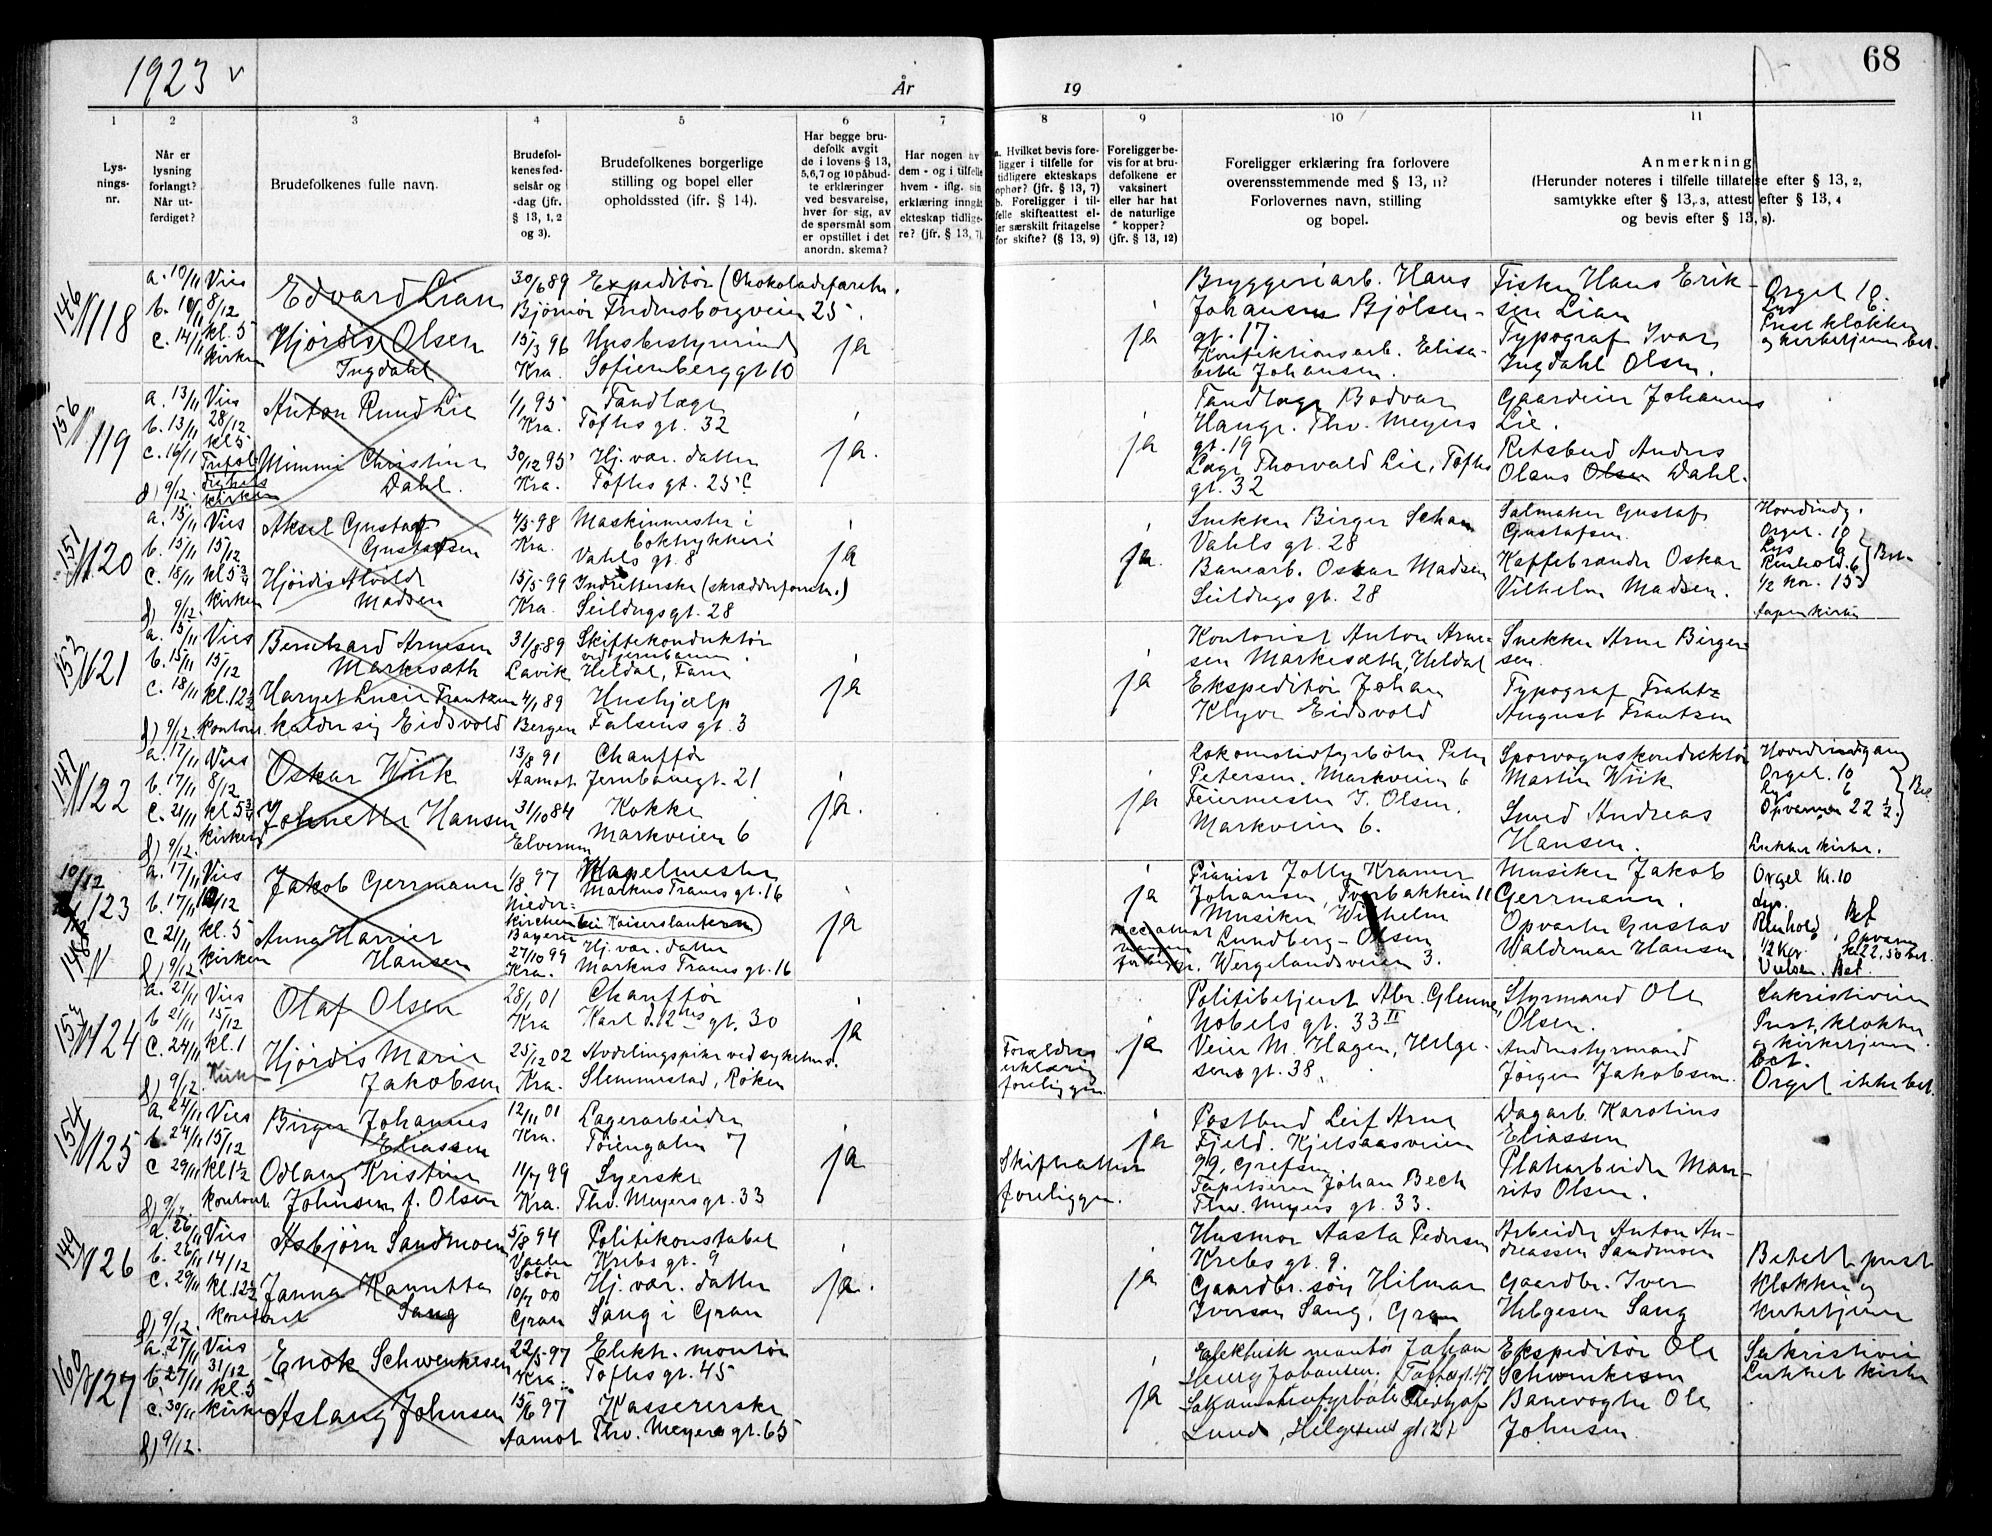 1923 v
År
19
68
1
2
3
4
5
6
7
8
9
10
11
Lys-
nings-
nr.
Når er
lysning
forlangt?
Når ut-
ferdiget?
Brudefolkenes fulle navn.
Brudefol-
kenes fød-
selsår og
-dag (jfr.
§ 13, 1, 2
og 3).
Brudefolkenes borgerlige
stilling og bopel eller
opholdssted (jfr. § 14).
Har begge bru-
defolk avgit
de i lovens § 13,
5, 6, 7 og 10 påbud-
te erklæringer
ved besvarelse,
hver for sig, av
de spørsmål som
er opstillet i det
anordn. skema?
Har nogen av
dem - og i tilfelle
hvem - iflg. sin
erklæring inngåt
ekteskap tidlige-
re? (jfr. § 13, 7)
a. Hvilket bevis fore-
ligger i tilfelle for
tidligere ekteskaps
ophør? (jfr. § 13, 7)
b. Foreligger i til-
felle skifteattest el-
ler særskilt fritagelse
for skifte? (§ 13, 9)
Foreligger be-
vis for at bru-
defolkene er
vaksinert
eller har hat
de naturlige
kopper?
(jfr. § 13, 12)
Foreligger erklæring fra forlovere
overensstemmende med § 13, 11?
Forlovernes navn, stilling
og bopel.
Anmerkning
(Herunder noteres i tilfelle tillatelse efter § 13, 2,
samtykke efter § 13, 3, attest efter § 13, 4
og bevis efter § 13, 8).
146
118
a. 10/11 Vies
b. 10/11 8/12
c. 14/11 kl. 5
kirken
Edvard Lian
Hjördis Olsen
Ingdahl
30/6 89 Expeditör (Chokoladeforretn.
Björnör Fredensborgveien 25.
15/3 96 Husbestyrerinde
Kra. Sofienberggt. 10
ja
ja
Bryggeriarb. Hans
Johansen Bjölsen-
gt. 17.
Konfektionsarb. Elisa-
beth Johansen.
Fisker Hans Erik-
sen Lian
Typograf Ivar
Ingdahl Olsen.
Orgel 18.
Lys
Prest klokker
og kirketjener bet.
156
119
a. 13/11 Vies
b. 13/11 28/12
c. 16/11 kl 5
d) 9/12. kirken
Anton Ruud Lie
Mimmi Christine
Dahl.
1/1 95 Tandlæge
Kra. Toftes gt. 32
30/12 95 Hj. vær. datter
Kra. Toftes gt. 25 C
ja.
ja
Tandlæge Bodvar
Hauge. Thv. Meyers
gt. 19
Læge Thorvald Lie, Toftes
gt. 32
Gaardeier Johannes
Lie.
Retsbud Anders
Olaus Olsen Dahl.
151
120
a. 15/11 Vies
b. 15/11 15/12
c. 18/11 kl 5 3/4
d) 9/12. kirken
Aksel Gustaf
Gustafsen
Hjördis Alvilde
Madsen
4/5 98 Maskinmester i
Kra. boktrykkeri
Vahls gt. 8
15/5 99 Indretterske (skrædderforretn.)
Kra. Seildugsgt. 28
ja
ja.
Snekker Birger Schau
Vahls gt. 28
Banearb. Oskar Madsen
Seildugs gt. 28
Salmaker Gustaf
Gustafsen.
Kaffebrænder Oskar
Vilhelm Madsen.
Hovedindg.
Orgel. 10
Lys 9
Renhold. 6
1/2 kor. 15
Aapen kirke
152
121
a. 15/11 Vies
b. 15/11 15/12
c. 18/11 kl. 12 1/2
d) 9/12. kontoret.
Bernhard Arnesen
Markesæth
Harget Lucie Frantzen
kalder sig Eidsvold
31/8 89 Skiftekonduktör
ved jernbanen.
Lavik Heldal, Fane
4/1 89 Hushjælp
Bergen Falsens gt. 3
ja
ja
Kontorist Anton Arne-
sen Markesæth, Heldal
Ekspeditör Johan
Klyve Eidsvold
Snekker Arne Birger-
sen.
Typograf Frantz
August Frantzen
147
122
a. 17/11 Vies
b. 17/11 8/12
c. 21/11 kl 5 3/4
d) 9/12. kirken
Oskar Wiik
Johnette Hansen
13/8 91 Chaufför
Aamot Jernbanegt. 21
31/10 84 Kokke
Elverum Markveien 6
ja.
ja
Lokomotivfyrböter Peter
Petersen. Markveien 6
Feiermester J. Olsen.
Markveien 6.
Sporvognskonduktör
Martin Wiik
Smed Andreas
Hansen.
Hovedindgang
Orgel. 10
Lys 6
Opvarmn 22 1/2.
Lukket kirke.
10/12
123
148
a. 17/11 Vies
b. 17/11 10/12
c 21/11 kl. 5
d) 9/12. kirken
Jakob Gerrmann
Anna Harriet
Hansen
1/8 97 Kapelmester
Markus Tranes gt. 16
Nieder-
kirchen bei Kaiserslautern
Bayern
27/10 99 Hj. vær. datter
Kra. Markus Tranes gt. 16
ja
ja
Pianist Jolly Kramer
Johansen, Torbakken 11
Musiker Wilhelm
Lundberg-Olsen
Wergelandsveien 3.
Musiker Jakob
Gerrmann.
Opvarter Gustav
Waldemar Hansen
Orgel Kr. 10
Lys.
Renhold Bet
1/2 kor.
Opvarm
kr 22,50 bet.
Vielsen. Bet.
153
124
a. 21/11 Vies
b 21/11 15/12
c. 24/11 kl. 1
d) 9/12. Kirken
Olaf Olsen
Hjördis Marie
Jakobsen
28/1 01 Chauffør
Kra Karl d. 12tes gt. 30
25/12 02 Avdelingspike ved sykehus.
Kra. Slemmestad, Röken
ja
Forældres
erklæring
foreligger.
ja
Politibetjent Abr. Glenne,
Nobels gt. 33 II
Veier M. Hagen, Helge-
sens gt. 38.
Styrmand Ole
Olsen.
Andenstyrmand
Jörgen Jakobsen.
Sakristiveien
Prest, klokker
og kirketjener
bet.
Orgel ikke bet.
154
125
a. 24/11 Vies
b. 24/11 15/12
c 29/11 kl 1 1/2
d) 9/12. kontoret
Birger Johannes
Eliassen
Odlaug Kristine
Johnsen f. Olsen
12/11 01 Lagerarbeider
Kra. Töiengaten 7
11/7 99 Syerske
Kra. Thv. Meyers gt. 33
ja
Skifteattest
foreligger.
ja
Postbud Leif Arne
Fjeld. Kjelsaasveien
99, Grefsen
Tapetserer Johan Bech
Thv. Meyers gt. 33.
Dagarb. Karolius
Eliassen
Platearbeider Mau-
rits Olsen.
149
126
a. 26/11 Vies
b. 26/11 14/12
c. 29/11 kl. 12 1/2
d) 9/12. kontoret
Asbjörn Sandmoen
Janna Kanutta
Sang
5/8 94 Politikonstabel
Vaaler Krebs gt. 9
Solör
10/7 00 Hj. vær. datter
Gran Sang i Gran
ja.
ja
Husmor Aasta Pedersen
Krebs gt. 9.
Gaardbr. sön Hilmar
Iversen Sang, Gran
Arbeider Anton An-
dreassen Sandmoen
Gaardbr. Iver
Helgesen Sang
Betalt prest
klokker og
kirketjener
160
127
a. 27/11 Vies
b. 27/11 31/12
kl. 5
c. 30/11 kirken
d) 9/12.
Enok Schwenkesen
Aslaug Johnsen
22/5 97 Elektr. montör
Kra. Toftes gt. 45
15/6 97 Kassererske
Aamot Thv. Meyers gt. 65
ja
Elektrisk montör Johan
Georg Johansen. Toftes gt. 47
Lokomotivfyrböter Fridtjof
Lund, Helgesens gt. 21
Ekspeditör Ole
Schwenkesen
Banevogter Ole
Johnsen.
Sakristiveien
Lukket kirke